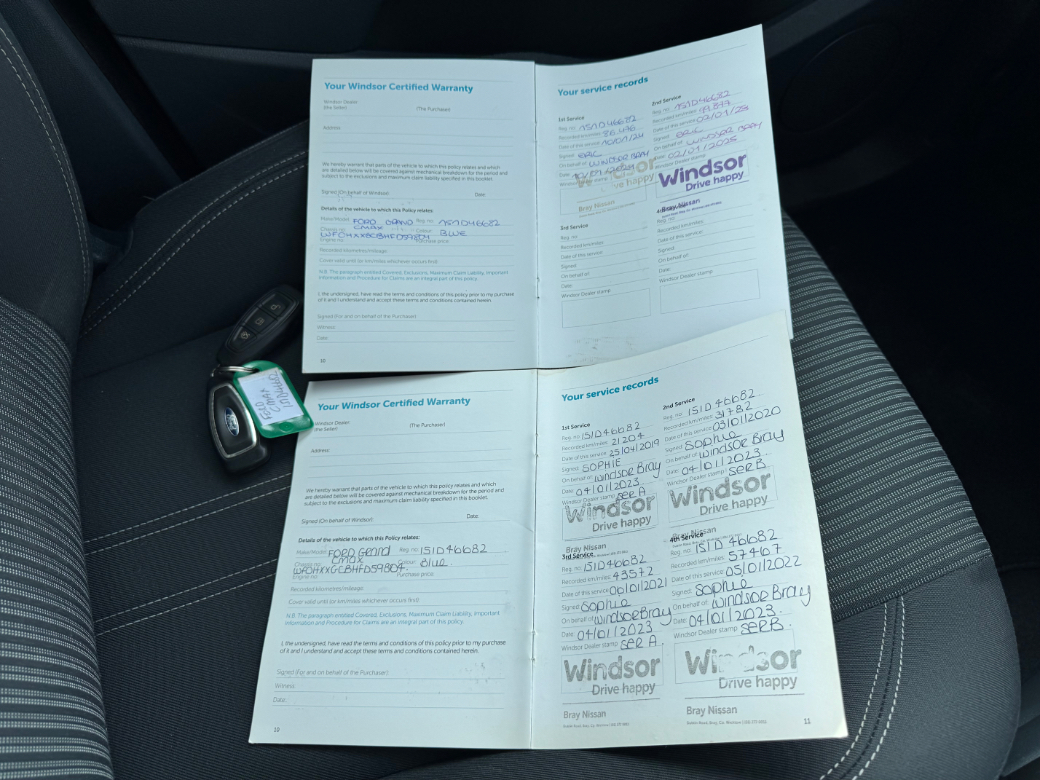 Your Windsor Certified Warranty
Windsor Dealer
(the Seller)
(The Purchaser)
Address:
We hereby warrant that parts of the vehicle to which this policy relates and which
are detailed below will be covered against mechanical breakdown for the period and
subject to the exclusions and maximum claim liability specified in this booklet.
Signed (On behalf of Windsor)
Date:
Details of the vehicle to which this Policy relates:
Make/Model: FORD GRAND CMAX Reg no: 151D46682
Chassis no: Colour: BLUE
Engine no: Purchase price:
Recorded kilometres/mileage:
Cover valid until (or km/miles whichever occurs first):
N.B. The paragraph entitled Covered, Exclusions, Maximum Claim Liability, Important
Information and Procedure for Claims are an integral part of this policy.
I, the undersigned, have read the terms and conditions of this policy prior to my purchase
of it and I understand and accept these terms and conditions contained herein.
Signed (For and on behalf of the Purchaser)
Witness:
Date:
10
Your service records
1st Service
Reg. no: 151D46682
Recorded km/miles:
Date of this service: 10/01/24
Signed: ERIC
On behalf of: WINDSOR BRAY
Windsor Dealer stamp
Bray Nissan
2nd Service
Reg. no: 151D46682
Recorded km/miles:
Date of this service:
Signed: ERIC
On behalf of: WINDSOR BRAY
Date: 02/01/2025
Windsor Dealer stamp
Windsor
Drive happy
Bray Nissan
3rd Service
Reg. no:
Recorded km/miles:
Date of this service:
Signed:
On behalf of:
Date:
Windsor Dealer stamp
4th Service
Reg. no:
Recorded km/miles:
Date of this service:
Signed:
On behalf of:
Date:
Windsor Dealer stamp
FORD
CMAX
Your Windsor Certified Warranty
Windsor Dealer
(the Seller)
(The Purchaser)
Address:
We hereby warrant that parts of the vehicle to which this policy relates and which
are detailed below will be covered against mechanical breakdown for the period and
subject to the exclusions and maximum claim liability specified in this booklet.
Signed (On behalf of Windsor)
Date:
Details of the vehicle to which this Policy relates:
Make/Model: FORD Grand CMAX Reg no: 151D46682
Chassis no: WFOHXXGCBHFD59804 Colour: Blue
Engine no: Purchase price:
Recorded kilometres/mileage:
Cover valid until (or km/miles whichever occurs first):
N.B. The paragraph entitled Covered, Exclusions, Maximum Claim Liability, Important
Information and Procedure for Claims are an integral part of this policy.
I, the undersigned, have read the terms and conditions of this policy prior to my purchase
of it and I understand and accept these terms and conditions contained herein.
Signed (For and on behalf of the Purchaser)
Witness:
Date:
10
Your service records
1st Service
Reg. no: 151D46682
Recorded km/miles: 21204
Date of this service: 25/04/2019
Signed: SOPHIE
On behalf of: Windsor Bray
Date: 04/01/2023
Windsor Dealer stamp SER A
Windsor
Drive happy
Bray Nissan
2nd Service
Reg. no: 151D46682
Recorded km/miles: 31782
Date of this service: 03/01/2020
Signed: Sophie
On behalf of: Windsor Bray
Date: 04/01/2023
Windsor Dealer stamp SER B
Windsor
Drive happy
Bray Nissan
3rd Service
Reg. no: 151D46682
Recorded km/miles: 43572
Date of this service:
Signed: Sophie
On behalf of: Windsor Bray
Date: 04/01/2023
Windsor Dealer stamp SER A
Windsor
Drive happy
Bray Nissan
4th Service
Reg. no: 151D46682
Recorded km/miles: 57467
Date of this service: 05/01/2022
Signed: Sophie
On behalf of: Windsor Bray
Date: 04/01/2023
Windsor Dealer stamp SER B.
Windsor
Drive happy
Bray Nissan
11